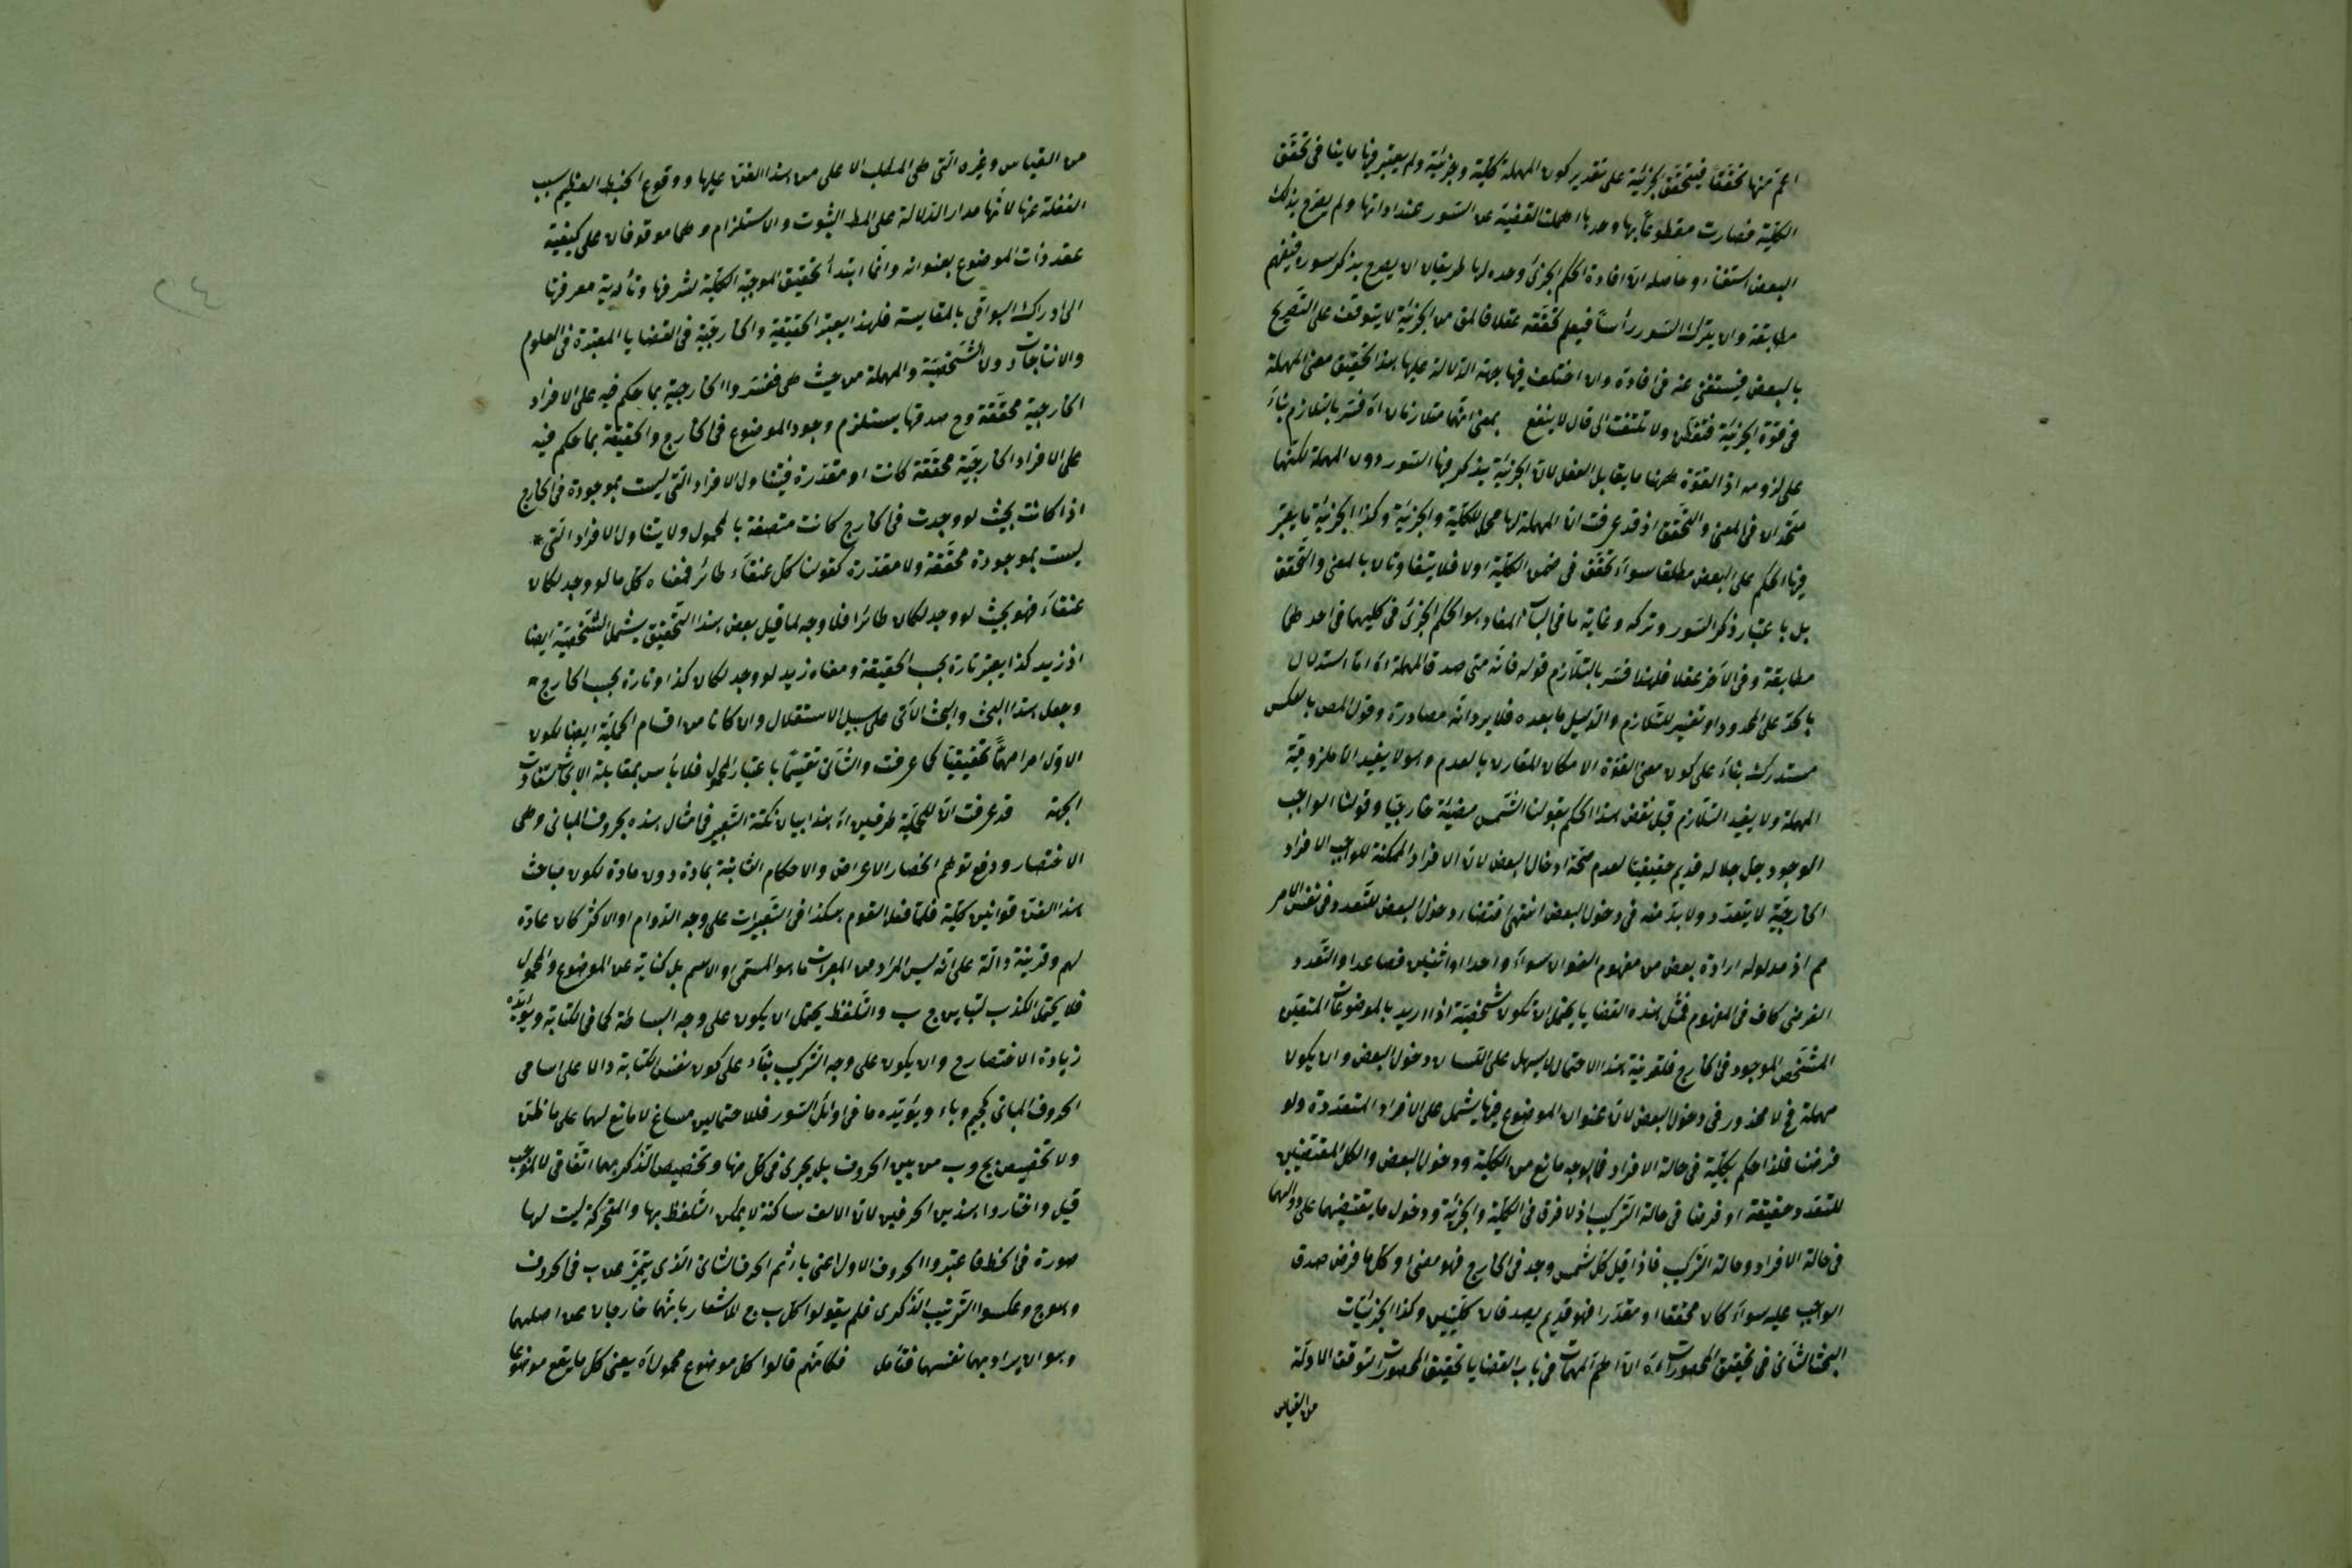 اعم منها تحققا فيتحقق الجزئية على تقدير كون المهملة كلية وجزئية ولم يعتبر فيها ما ينافى تحقق
الكلية فصارت مقطوعا بها وحدها اهملت القضية عن السور عند اداتها ولم يصرح بذلك
البعض استغناء وحاصله ان افادة الحكم الجزئى وحده لها طريقان ان يصرح بذكر سوره فيفهم
مطابقة وان يترك السور رأسا فيعلم تحققه عقلا فالمق من الجزئية لا يتوقف على التصريح
بالبعض فيستغنى عنه فى افادة وان اختلف فيها جهة الدلالة عليها هذا تحقيق معنى المهملة
فى قوة الجزئية فتفطن ولا تلتفت الى قال لا ينفع بمعنى انهما متلازمان اه فسر بالتلازم بناء
على لزومه اذ القوة ههنا ما يقابل الفعل لان الجزئية يذكر فيها السور دون المهملة لكنها
متحدان فى المعنى والتحقق اذ قد عرفت ان المهملة لها محل للكلية والجزئية وكذا الجزئية ما يعتبر
فيها الحكم على البعض مطلقا سواء تحقق فى ضمن الكلية اولا فلا يتفاوتان بالمعنى والتحقق
بل باعتبار ذكر السور وتركه وغاية ما فى الباب المفاد هو الحكم الجزئى فى كليهما فى احدهما
مطابقة وفى الآخر عقلا فلهذا فسر بالتلازم قوله فانه متى صدق المهملة اه اما استدلال
بالحد على المحدود او تفسير للتلازم والدليل ما بعده فلا يرد انه مصادرة وقول المص بالعكس
مستدرك بناء على كون معنى القوة الامكان المقارن بالعدم وهو لا يفيد الا ملزومية
المهملة ولا يفيد التلازم قيل نقض هذا الحكم بقولنا الشمس مضيئة خارجيا وقولنا الواجب
الوجود جل جلاله قديم حقيقيا لعدم صحة ادخال البعض لان الافراد الممكنة للواجب الافراد
الخارجية لا يتعدد ولا بد منه فى دخول البعض انتهى اقتضاء دخول البعض للتعدد فى نفس الامر
مم اذ مدلوله ارادة بعض من مفهوم العنوان سواء واحدا او اثنين فصاعدا والتعدد
الفرضى كاف فى المفهوم فمثل هذه القضايا يحتمل ان تكون شخصية اذا اريد بالموضوعات المتعين
المشخص الموجود فى الخارج فلقرينة هذا الاحتمال لا يسهل على اللسان دخول البعض وان يكون
مهملة فح لا محذور فى دخول البعض لان عنوان الموضوع فيها يشمل على الافراد المتعددة ولو
فرضا فلذا حكم بكلية فى حالة الافراد فما الوجه مانع من الكلية ودخول البعض والكل المقتضيين
للتعدد حقيقة او فرضا فى حالة التركيب اذ لا فرق فى الكلية والجزئية ودخول ما يقتضيهما على
فى حالة الافراد وحالة التركيب فاذا قيل كل شمس وجد فى الخارج فهو مضئ او كل ما فرض صدق
الواجب عليه سواء كان محققا او مقدرا فهو قديم يصدقان كليتين وكذا الجزئيات
البحث الثانى فى تحقيق المحصورات اه ان اهم المهمات فى باب القضايا تحقيق المحصورات لتوقف الادلة
من القياس
من القياس وغيره التى هى المطلب الاعلى من هذا الفن عليها ووقوع الخبط العظيم بسبب
الغفلة عنها لانها مدار الدلالة على المط الثبوت والاستلزام وهما موقوفان على كيفية
عقد ذات الموضوع بعنوانه وانما ابتدأ تحقيق الموجبة الكلية لشرفها وتأدية معرفتها
الى ادراك البواقى بالمقايسة فلهذا يعتبر الحقيقية والخارجية فى القضايا المعتبرة فى العلوم
والانتاجات دون الشخصية والمهملة من حيث هى ففسروا الخارجية بما حكم فيه على الافراد
الخارجية محققة وح صدقها يستلزم وجود الموضوع فى الخارج والحقيقة بما حكم فيه
على الافراد الخارجية محققة كانت او مقدرة فيتناول الافراد التى ليست بموجودة فى الخارج
اذا كانت بحيث لو وجدت فى الخارج كانت متصفة بالمحمول ولا يتناول الافراد التى *
ليست بموجودة محققة ولا مقدرة كقولنا كل عنقاء طائر فمعناه كل ما لو وجد لكان
عنقاء فهو بحيث لو وجد لكان طائرا فلا وجه لما قيل بعض هذا التحقيق يشمل الشخصية ايضا
اذ زيد كذا يعتبر تارة بحسب الحقيقة ومعناه زيد لو وجد لكان كذا وتارة بحسب الخارج *
وجعل هذا البحث والبحث الآتى على سبيل الاستقلال وان كانا من اقسام الحملية ايضا لكون
الاول امرا مهما تحقيقيا كما عرفت والثانى تقسيما باعتبار المحمول فلا بأس بمقابلة الابحاث
الجهة قد عرفت ان للحملية طرفين اه هذا بيان نكتة التعبير فى مثال هذه بحروف المبانى وهى
الاختصار ودفع توهم انحصار الاعراض والاحكام الثابتة بمادة دون مادة لكون مباحث
هذا الفن قوانين كلية فلما فعل القوم هكذا فى التعبيرات على وجه الدوام او الاكثر كان عادة
لهم وقرينة دالة على انه ليس المراد من المعبرات ما هو المسمى او الاسم بل كناية عن الموضوع والمحمول
فلا يحتمل الكذب لتباين ج ب والتلفظ يحتمل ان يكون على وجه البساطة كما فى الكتابة ويؤيده
زيادة الاختصار ح وان يكون على وجه التركيب بناء على كون نفس الكتابة دالا على اسامى
الحروف المبانى كجيم وباء ويؤيده ما فى اوائل السور فللاحتمالين مساغ لا مانع لهما على ما ظن
ولا تخصيص بج وب من بين الحروف بل يجرى فى كل منها وتخصيص الذكر بهما اتفاقى لا لموجب
قيل واختاروا هذين الحرفين لان الالف ساكنة لا يمكن التلفظ بها والمتحركة ليست لها
صورة فى الخط فاعتبروا الحروف الاول اعنى با ثم الحرف الثانى الذى يتميز عن ب فى الحروف
وهو ج وعكسوا الترتيب الذكرى فلم يقولوا كل ب ج للاشعار بانهما خارجان عن اصلهما
وهو ان يراد بهما نفسهما فتأمل فكانهم قالوا كل موضوع محمول اه يعنى كل ما يقع موضوعا
٢٤